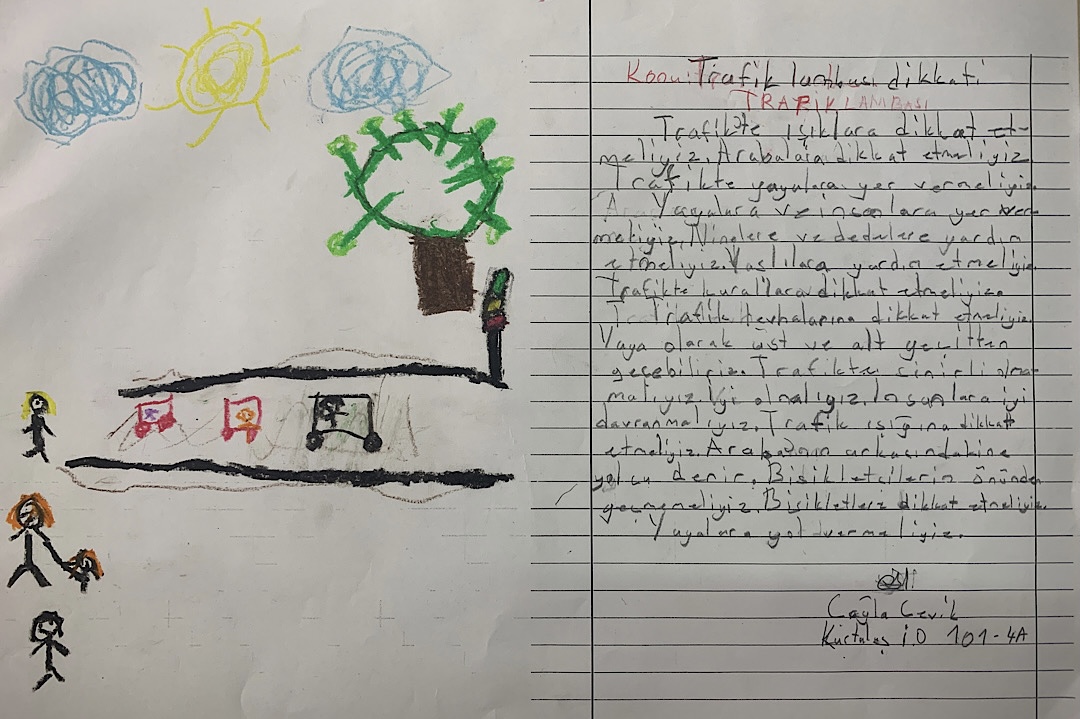 Konu: Trafik lambası dikkati
TRAFİK LAMBASI
Trafikte ışıklara dikkat et-
meliyiz. Arabalara dikkat etmeliyiz.
Trafikte yayalara yer vermeliyiz.
A Yayalara ve insanlara yer ver-
meliyiz. Ninelere ve dedelere yardım
etmeliyiz. Yaşlılara yardım etmeliyiz.
Trafikte kurallara dikkat etmeliyiz.
T Trafik levhalarına dikkat etmeliyiz.
Yaya olarak üst ve alt geçitten
geçebiliriz. Trafikte sinirli olma-
malıyız. İyi olmalıyız. İnsanlara iyi
davranmalıyız. Trafik ışığına dikkat
etmeliyiz. Arabanın arkasındakine
yolcu denir. Bisikletçilerin önünden
geçmemeliyiz. Bisikletlere dikkat etmeliyiz.
Yayalara yol vermeliyiz.
Çağla Çevik
Kurtuluş İ.O 101-4A